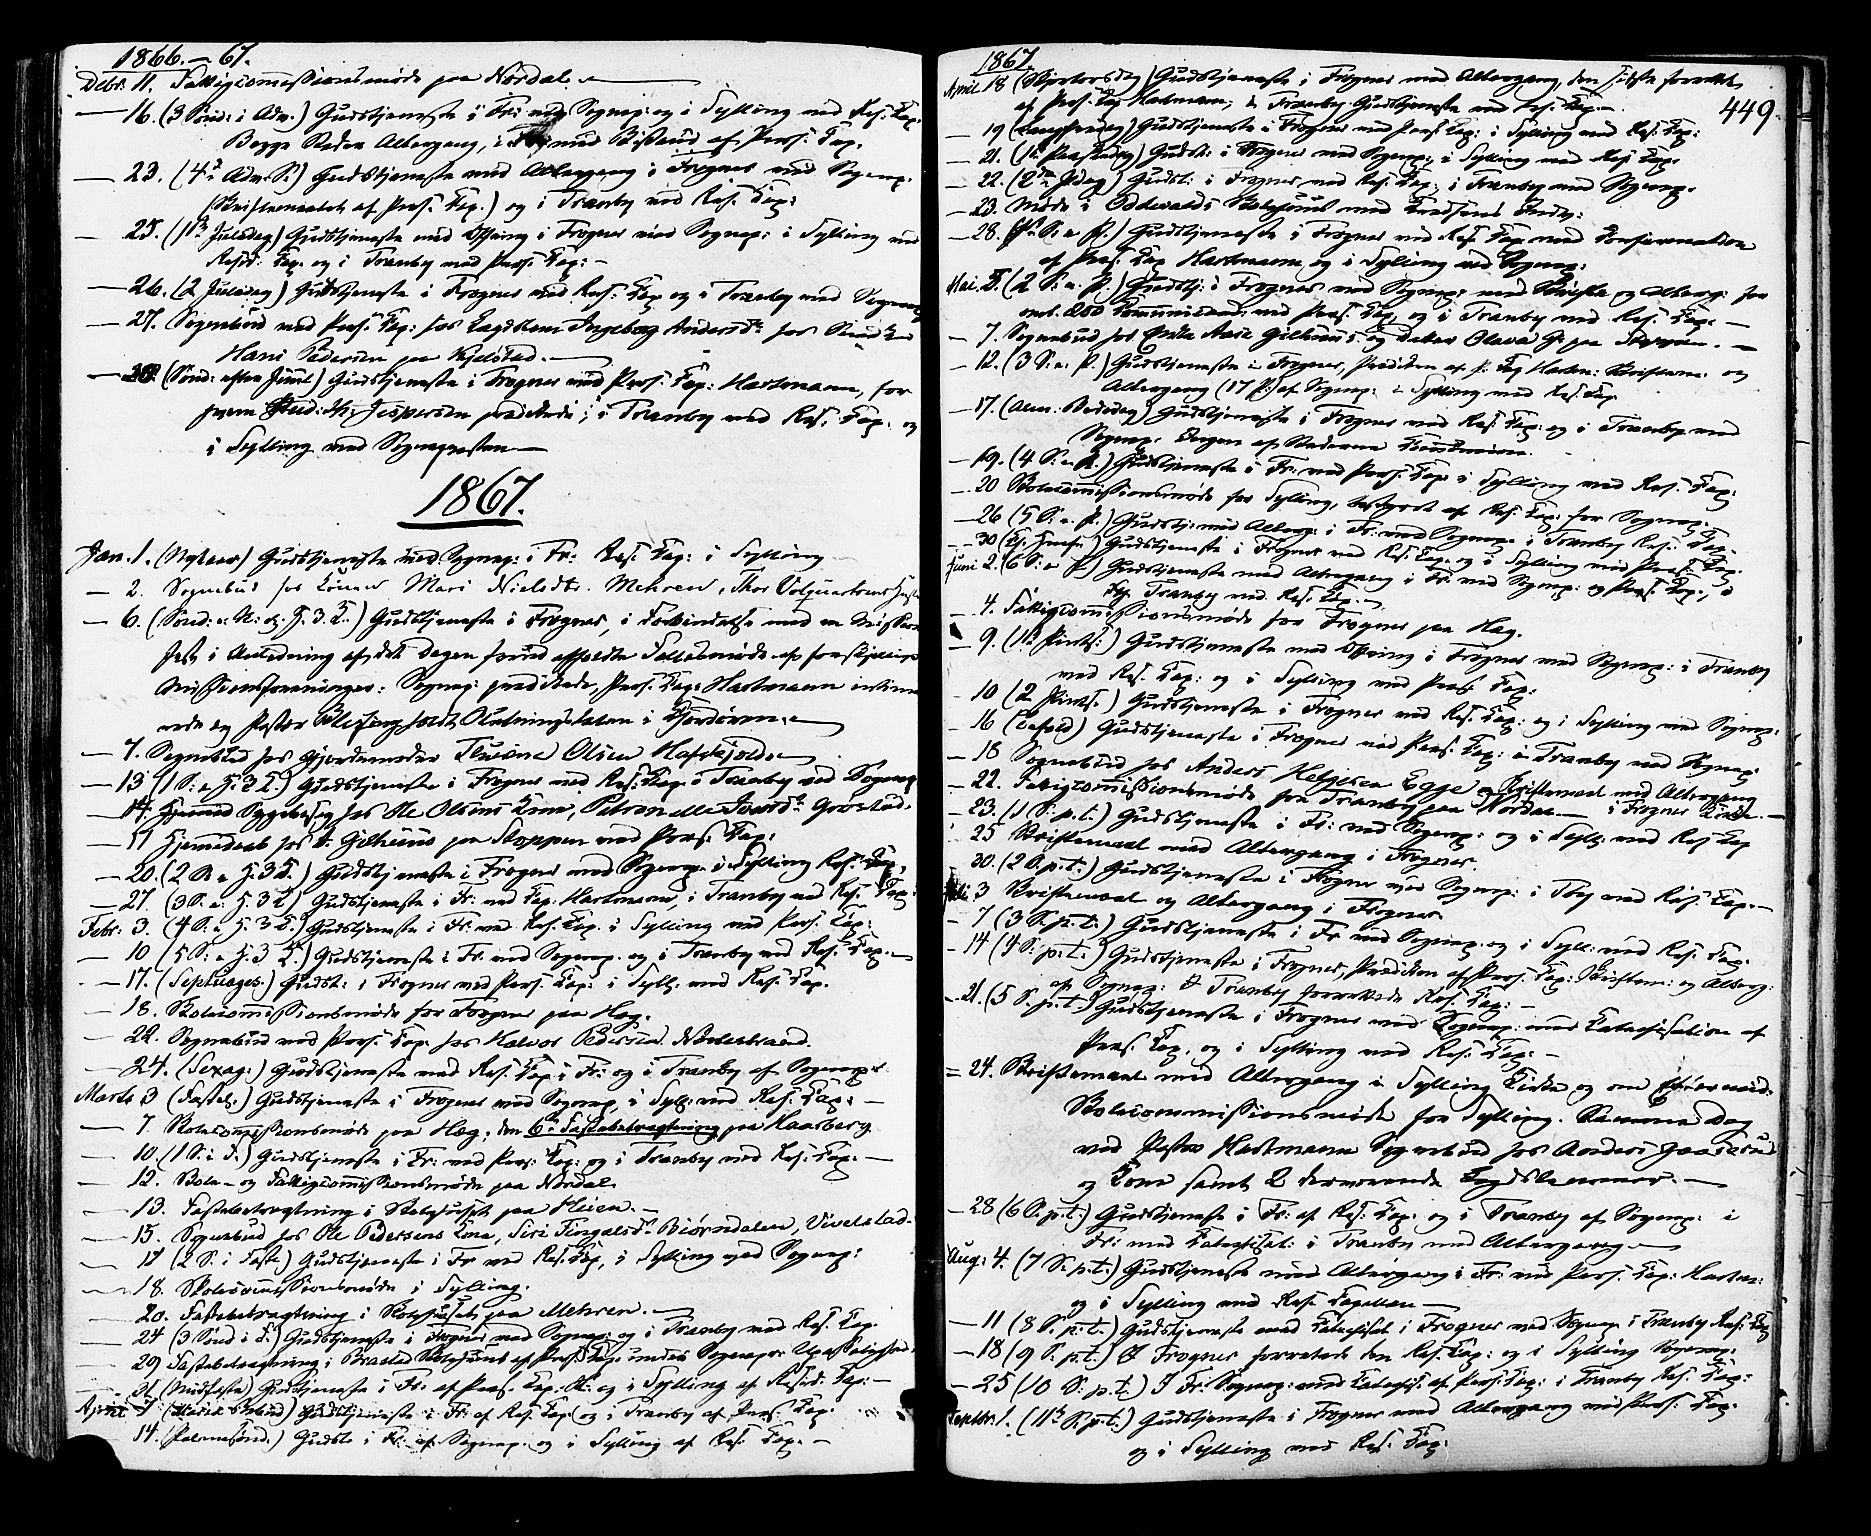 1866.–67.
Dcbr. 11. Fattigcommissionsmøde paa Nordal.
— 16. (3 Sønd: i Adv.) Gudstjeneste i Fr: med Sognep: og i Sylling med Res: Cap:
Begge Steder Altergang, i Fr: med Bistand af Pers. Cap.
— 23. (4de Adv. S.) Gudstjeneste med Altergang i Frogner med Sognep.
(Skriftemaalet af Pers. Cap.) og i Tranby ved Res. Cap:
— 25. (1ste Juledag) Gudstjeneste med Offring i Frogner med Sognep: i Sylling med
Resid: Cap. og i Tranby med Pers. Cap: –
— 26. (2 Juledag) Gudstjeneste i Frogner med Res: Cap og i Tranby med Sognep
— 27. Sognebud med Pers. Cap: hos Lægdslem Ingeborg Andersdtr hos
Hans Pedersen paa Kjelstad.
— 30 (Sønd: efter Juul) Gudstjeneste i Frogner med Pers. Cap: Hartmann, for
hvem Stud: th: Jespersen prædikede; i Tranby med Res: Cap. og
i Sylling med Sognepresten
1867.
Jan. 1. (Nytaar) Gudstjeneste med Sognep: i Fr: Res. Cap: i Sylling
— 2. Sognebud hos Konen Mari Nielsdtr. Mehren, Thor
— 6. (Sønd: e: N: og H. 3 K.) Gudstjeneste i Frogner, i Forbindelse med en Missions
fest i Anledning af det Dagen forud afholdte Fællesmøde af forskjellige
Missionsforeninger: Sognep: prædikede, Pers. Cap: Hartmann
rede og Pastor holdt i Chordøren.
— 7. Sognebud hos Gjordemoder Olsen
— 13 (1 S: e H: 3 K.) Gudstjeneste i Frogner med Res. Cap. i Tranby med Sognep
— 14. Sygebesøg hos Ole Olsens Kone, Petronelle
— 17 Hjemmedaab hos A. Gilhuus paa Kloppen ved Pers. Cap:
— 20. (2 S. e H: 3 K.) Gudstjeneste i Frogner med Sognep. i Sylling Res. Cap,
— 27. (3 S. e. H. 3 K) Gudstjeneste i Fr: med Cap: Hartmann, i Tranby ved Res. Cap:
Febr: 3. (4 S. e H. 3 K.) Gudstjeneste i Fr: med Res. Cap. i Sylling med Pers. Cap:
— 10 (5 S: e H. 3 K.) Gudstjeneste i Fr. med Sognep. og i Tranby med Res. Cap.
— 17. (Septuages.) Gudst: i Frogner med Pers. Cap: i Syll. med Res. Cap.
— 18. Skolecommissionsmøde for Frogner paa Hag.
— 22. Sognebud ved Pers. Cap. hos Halvor Pedersen
— 24. (Sexag:) Gudstjeneste med Res. Cap i Fr: og i Tranby af Sognep:
Marts 3 (Fastel:) Gudstjeneste i Frogner med Sognep. i Syll: med Res. Cap: –
— 7. Skolecommissionsmøde paa Hag; den 6te Fastebetragtning paa Kaasberg
— 10. (1 S. i F.) Gudstjeneste i Fr: ved Pers. Cap: og i Tranby med Res. Cap. –
— 12. Skole- og Fattigcommissionsmøde paa Nordal.
— 13. Fastebetragtning i Skolehuset paa Heien. –
— 15. Sognebud hos Ole Pedersens Kone, Siri Fingalsdtr Biørndalen, Vivelstad.
— 17 (2 S. i Faste) Gudstjeneste i Fr med Res. Cap, i Sylling med Sognep:
— 18. Skolecommissionsmøde i Sylling.
— 20. Fastebetragtning i Skolehuset paa Mehren.
— 24 (3 Sønd i F.) Gudstjeneste i Frogner med Sognep: og i Tranby med Res. Cap.
— 29 Fastebetragtning i Skolehuus af Pers. Cap. under Sognepr: Upasselighed.
— 31. (Midfaste) Gudstjeneste i Fr: af Pers. Cap: H: og i Sylling af Resid: Cap: –
April 7 Gudstjeneste i Fr: af Res. Cap: og i Tranby af Pers. Cap:
14. (Palmesønd.) Gudstj i Fr. af Sognep. og i Sylling af Res. Cap: –
1867.
449.
April 18 (Skjertorsdag) Gudstjeneste i Frogner med Altergang, den sidste forrettet
af Pers. Cap Hartmann; i Tranby Gudstjeneste med Res. Cap. –
— 19 (Langfredag) Gudstjeneste i Frogner med Pers. Cap: i Sylling med Res. Cap:
— 21. (1ste Paaskedag) Gudst: i Frogner med Sognep; i Sylling med Res Cap.
— 22. (2den Pdag) Gudst: i Frogner med Res. Cap; i Tranby med Sognep.
— 23. Møde i Oddevalds Skolehuus med Kredsens
— 28. (1 S. e. P.) Gudstjeneste i Frogner med Res. Cap med Confirmation
af Pers. Cap Hartmann og i Sylling med Sognep:
Mai 5. (2 S: e. P.) Gudstj: i Frogner med Sognep: med Skrifte og Alterg: for
omt. 200 Communicant: med Pers. Cap, og i Tranby med Res. Cap. –
— 7. Sognebud hos Enke Gilhuus og datter Olava G: paa Kloppen. –
— 12. (3 S: e. P.) Gudstjeneste i Frogner, Prædiken af P. Cap Hartm. Skriftem: og
Altergang (17 P.) af Sognep: i Sylling med Res. Cap
— 17. (Alm: Bededag) Gudstjeneste i Frogner med Res. Cap: og i Tranby med
Sognep. Ingen af Stederne
— 19. (4 S: e. P.) Gudstjeneste i Fr: med Pers. Cap. i Sylling med Res. Cap:
— 20 Skolecommissionsmøde for Sylling, bestyret af Res. Cap: for Sognep:
— 26 (5 S: e. P.) Gudstj: med Alterg: i Fr: med Sognep: i Tranby Res: Cap.
— 30 Gudstjeneste i Frogner med Res. Cap. og i Sylling med Pers. Cap.
Juni 2. (6 S: e P) Gudstjeneste med Altergang i Fr. med Sognep: og Pers. Cap., i
Tranby med Res. Cap. –
— 4. Fattigcommissionsmøde for Frogner paa Hag.
— 9. (1ste Pintsd:) Gudstjeneste med Offring i Frogner med Sognep: i Tranby
med Res. Cap: og i Sylling med Pers Cap:
— 10 (2 Pintsd.) Gudstjeneste i Frogner med Res. Cap: og i Sylling med Sognep:
— 16 (Trefold) Gudstjeneste i Frogner med Pers. Cap: i Tranby med Sognep
— 18 Sognebud hos Anders Egge og Skriftemaal med Altergang
— 22. Fattigcommissionsmøde for Tranby paa Nordal – i Frogner Kirke. –
— 23. (1 S. p. t.) Gudstjeneste i Fr: med Sognep: og i Syll: med Res Cap
25 Skriftemaal med Altergang i Frogner
30. (2 S. p. t.) Gudstjeneste i Frogner med Sognep: i Tby med Res. Cap. –
Juli 3 Skriftemaal og Altergang i Frogner
— 7 (3 S. p. t.) Gudstjeneste i Fr med Sognep: og i Syll: med Res. Cap.
— 14 (4 S. p. t.) Gudstjeneste i Frogner, Prædiken af Pers. Cap: Skriftem: og Alterg:
af Sognep: I Tranby forrettede Res. Cap: –
— 21. (5 S. p. t) Gudstjeneste i Frogner med Sognep: med Catechisation af
Pers. Cap. og i Sylling med Res. Cap: –
— 24. Skriftemaal med Altergang i Sylling Kirke og om Efterm:
Skolecommissionsmøde for Sylling. Samme Dag
ved Pastor Hartmann Sognebud hos Anders
og Kone samt 2 derværende Lægdslemmer. –
— 28 (6 S. p. t.) Gudstjeneste i Fr: af Res. Cap: og i Tranby af Sognep: i
Fr: med Catechisat: i Tranby med Altergang –
Aug: 4. (7 S. p. t.) Gudstjeneste med Altergang i Fr: med Pers. Cap: Hartm:
og i Sylling med Res. Capellan –
— 11 (8 S. p. t.) Gudstjeneste med Catechisat. i Frogner med Sognep. i Tranby Res: Cap
— 18 (9 S: p. t.) I Frogner forrettede den Res. Cap: og i Sylling Sognep:
— 25 (10 S: p. t.) I Fr: Sognep: med Catechis. af Pers. Cap: i Tranby Res. Cap:
Septbr: 1. (11te S. p. t.) Gudstjeneste i Frogner med Altergang med Pers. Cap.
og i Sylling med Res. Cap: